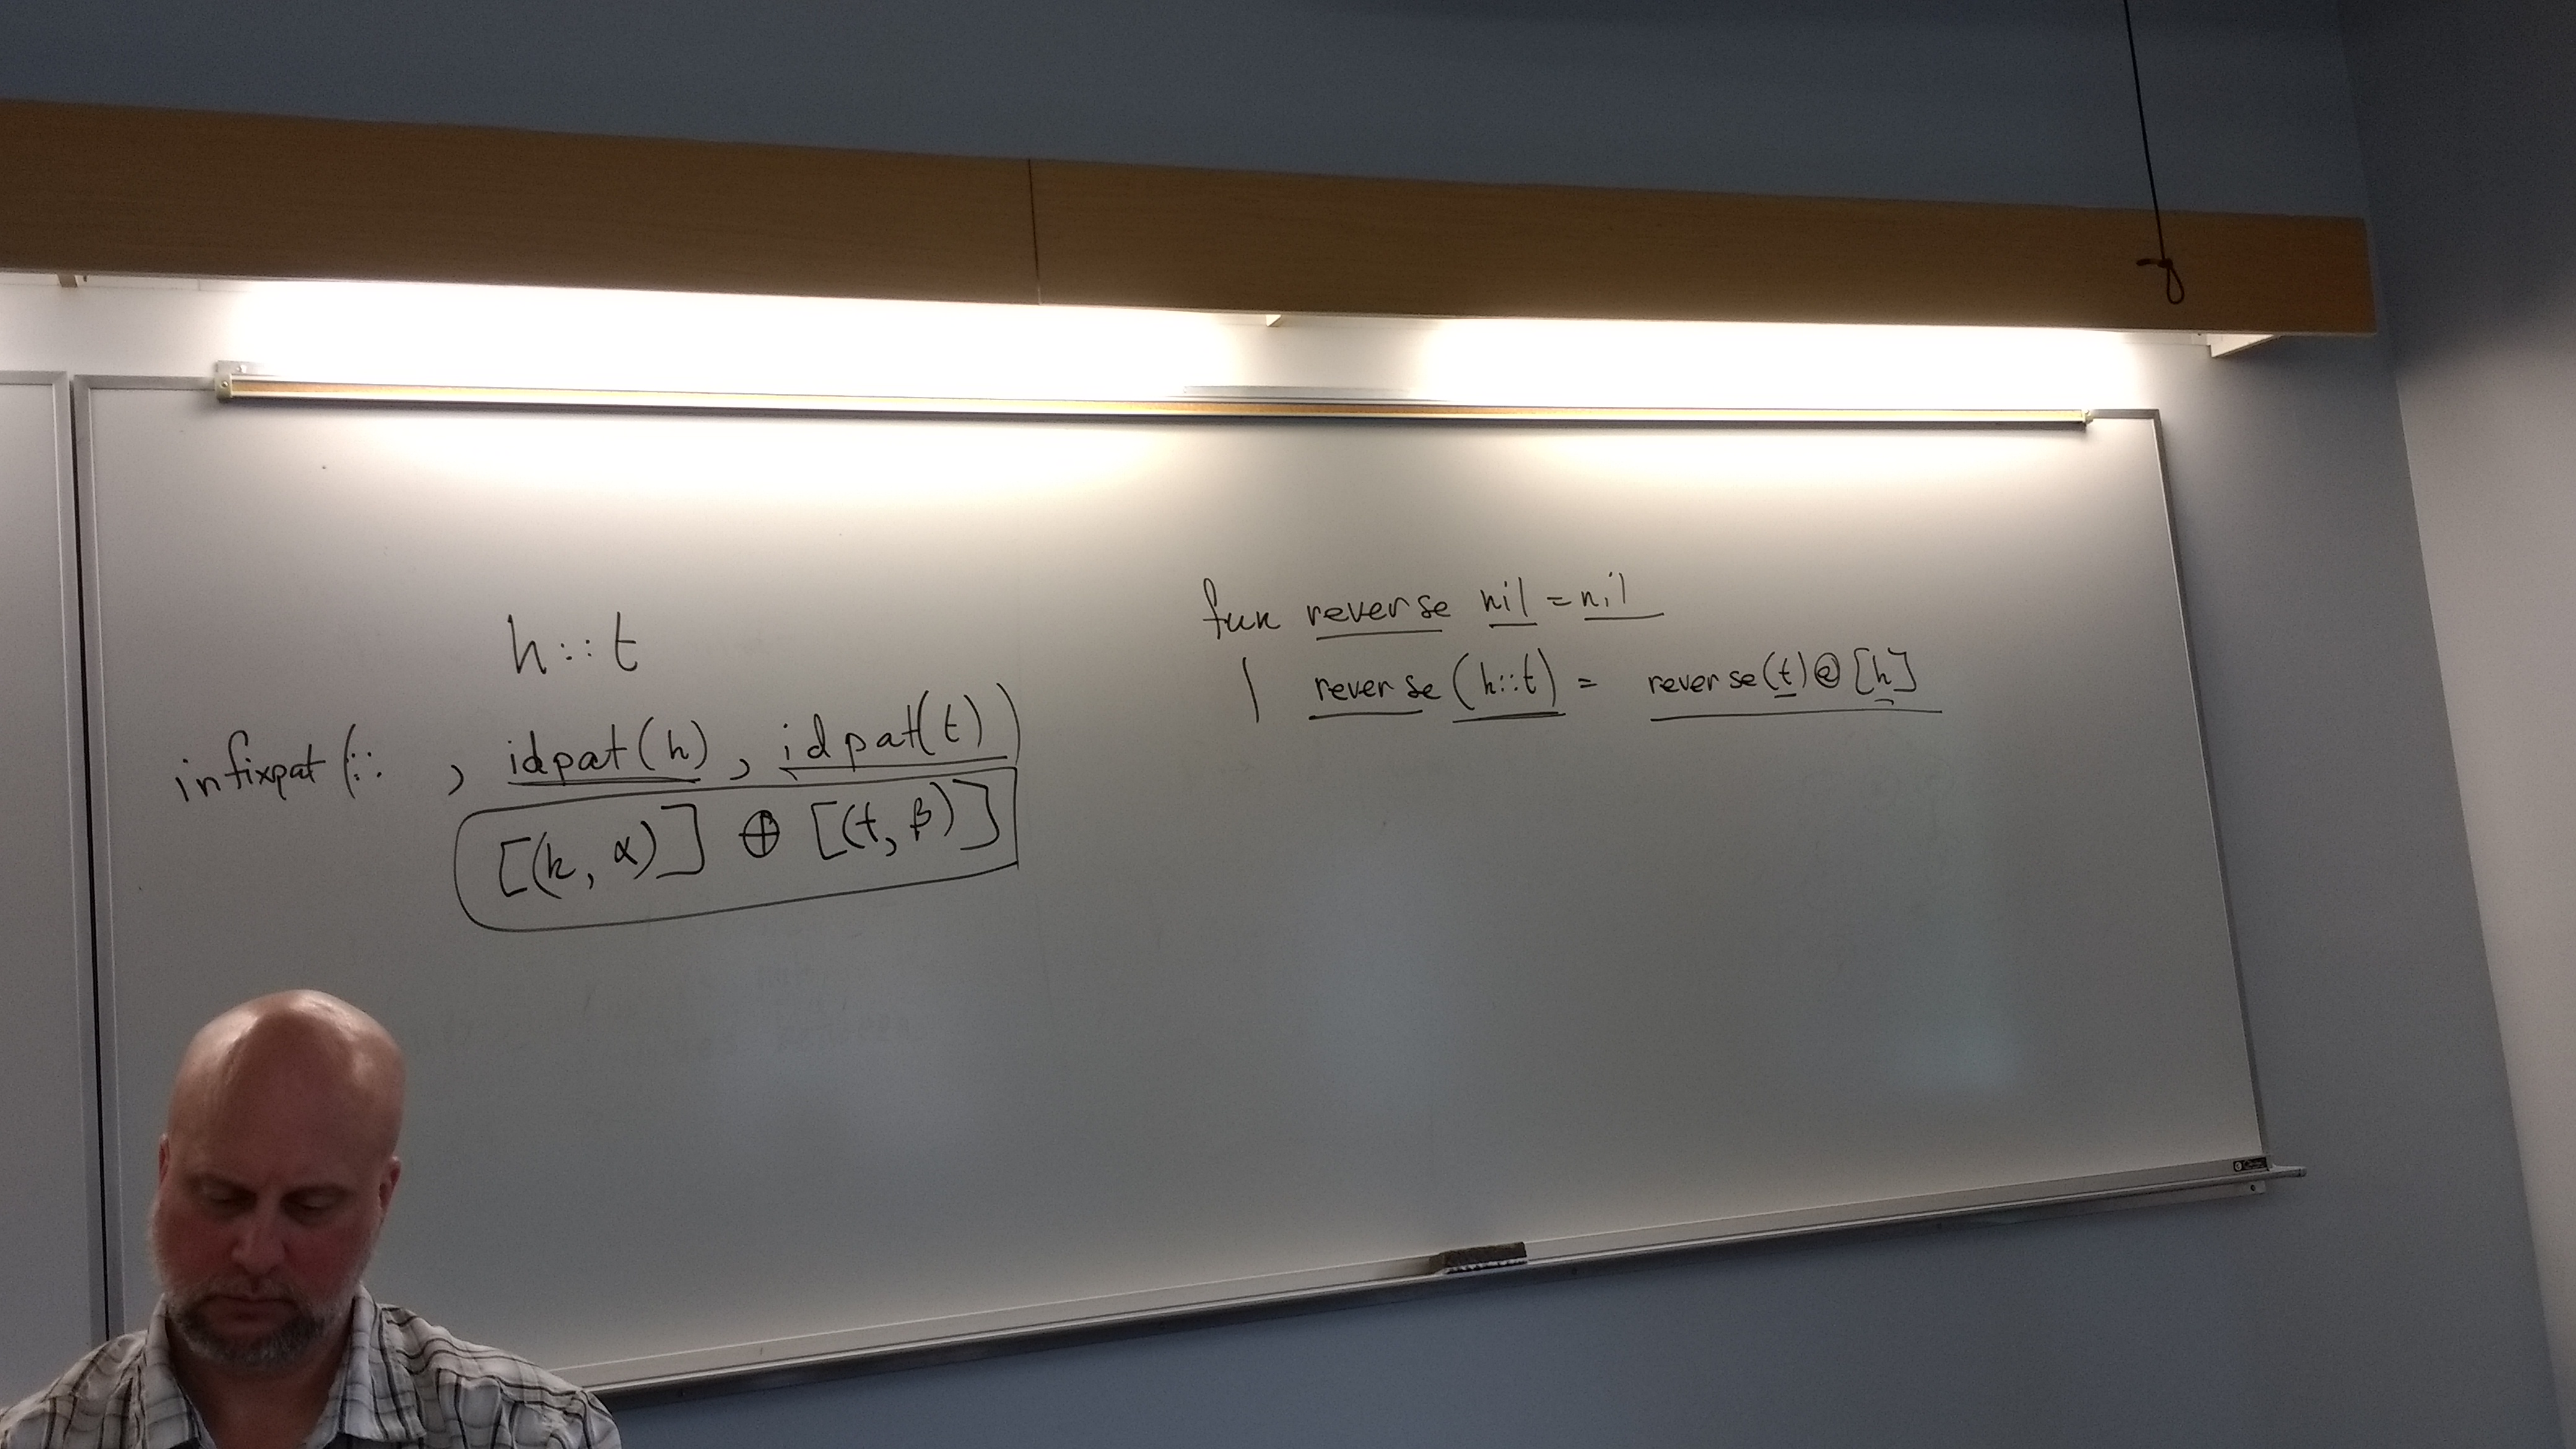 h::t
infixpat(:: , idpat(h), idpat(t))
[(h, α)] ⊕ [(t, β)]
fun reverse nil = nil
| reverse (h::t) = reverse(t)@[h]